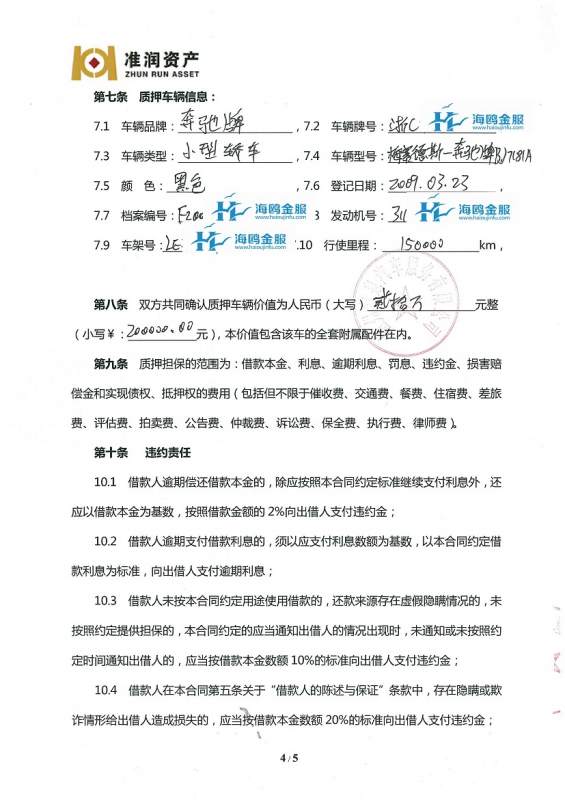 准润资产
ZHUN RUN ASSET
第七条 质押车辆信息：
7.1 车辆品牌：奔驰牌，7.2 车辆牌号：浙C 海鸥金服 www.haioujinfu.com
7.3 车辆类型：小型轿车，7.4 车辆型号：梅赛德斯—奔驰牌BJ7181A
7.5 颜 色：黑色，7.6 登记日期：2009.03.23，
7.7 档案编号：F200 海鸥金服 www.haioujinfu.com 8 发动机号：311 海鸥金服 www.haioujinfu.com，
7.9 车架号：LE 海鸥金服 www.haioujinfu.com .10 行使里程：150000 km，
第八条 双方共同确认质押车辆价值为人民币（大写）贰拾万元整
（小写￥：200000.00元），本价值包含该车的全套附属配件在内。
第九条 质押担保的范围为：借款本金、利息、逾期利息、罚息、违约金、损害赔
偿金和实现债权、抵押权的费用（包括但不限于催收费、交通费、餐费、住宿费、差旅
费、评估费、拍卖费、公告费、仲裁费、诉讼费、保全费、执行费、律师费）。
第十条 违约责任
10.1 借款人逾期偿还借款本金的，除应按照本合同约定标准继续支付利息外，还
应以借款本金为基数，按照借款金额的2%向出借人支付违约金；
10.2 借款人逾期支付借款利息的，须以应支付利息数额为基数，以本合同约定借
款利息为标准，向出借人支付逾期利息；
10.3 借款人未按本合同约定用途使用借款的，还款来源存在虚假隐瞒情况的，未
按照约定提供担保的，本合同约定的应当通知出借人的情况出现时，未通知或未按照约
定时间通知出借人的，应当按借款本金数额10%的标准向出借人支付违约金；
10.4 借款人在本合同第五条关于“借款人的陈述与保证”条款中，存在隐瞒或欺
诈情形给出借人造成损失的，应当按借款本金数额20%的标准向出借人支付违约金；
4 / 5